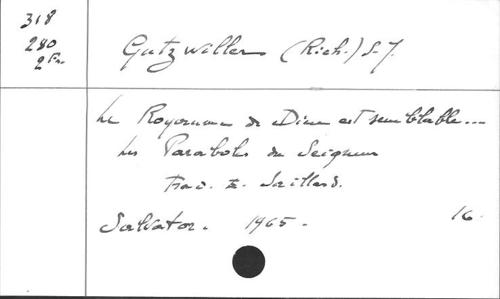 318
280
2 Fr.
Gutzwiller (Rich.) S.J.
Le Royaume de Dieu est semblable...
Les Paraboles du Seigneur
Trad. E. Saillard.
Salvator. 1965. 16